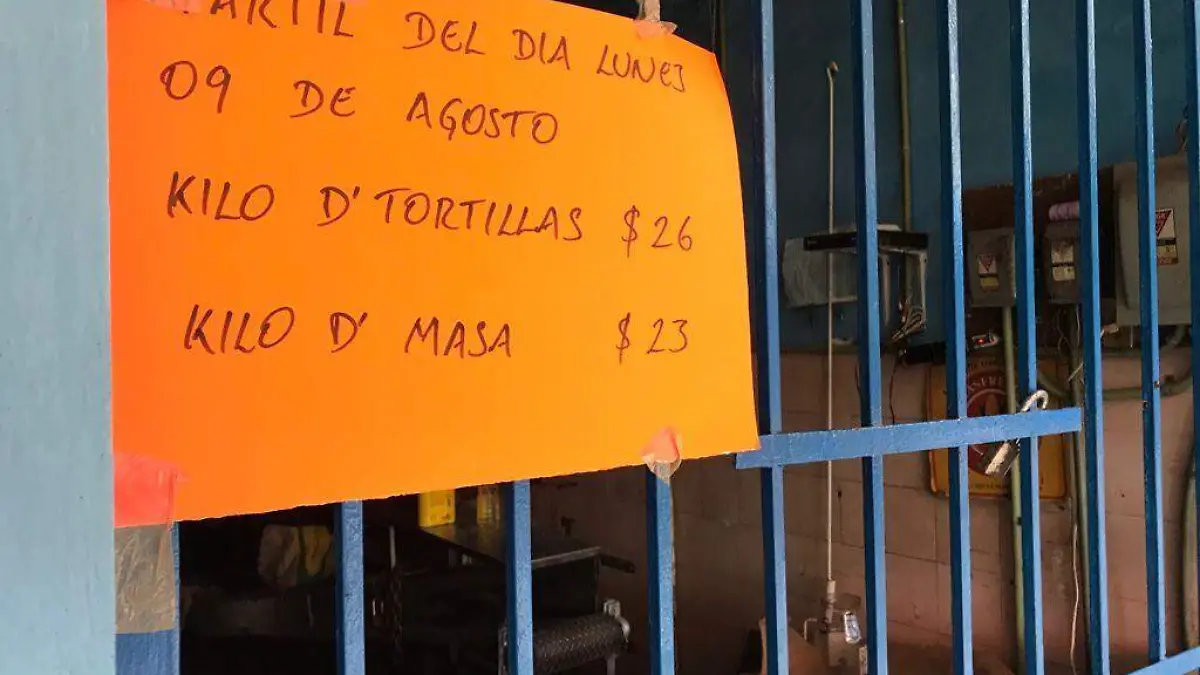 ARTIL DEL DIA LUNES
09 DE AGOSTO
KILO D' TORTILLAS $26
KILO D' MASA $23